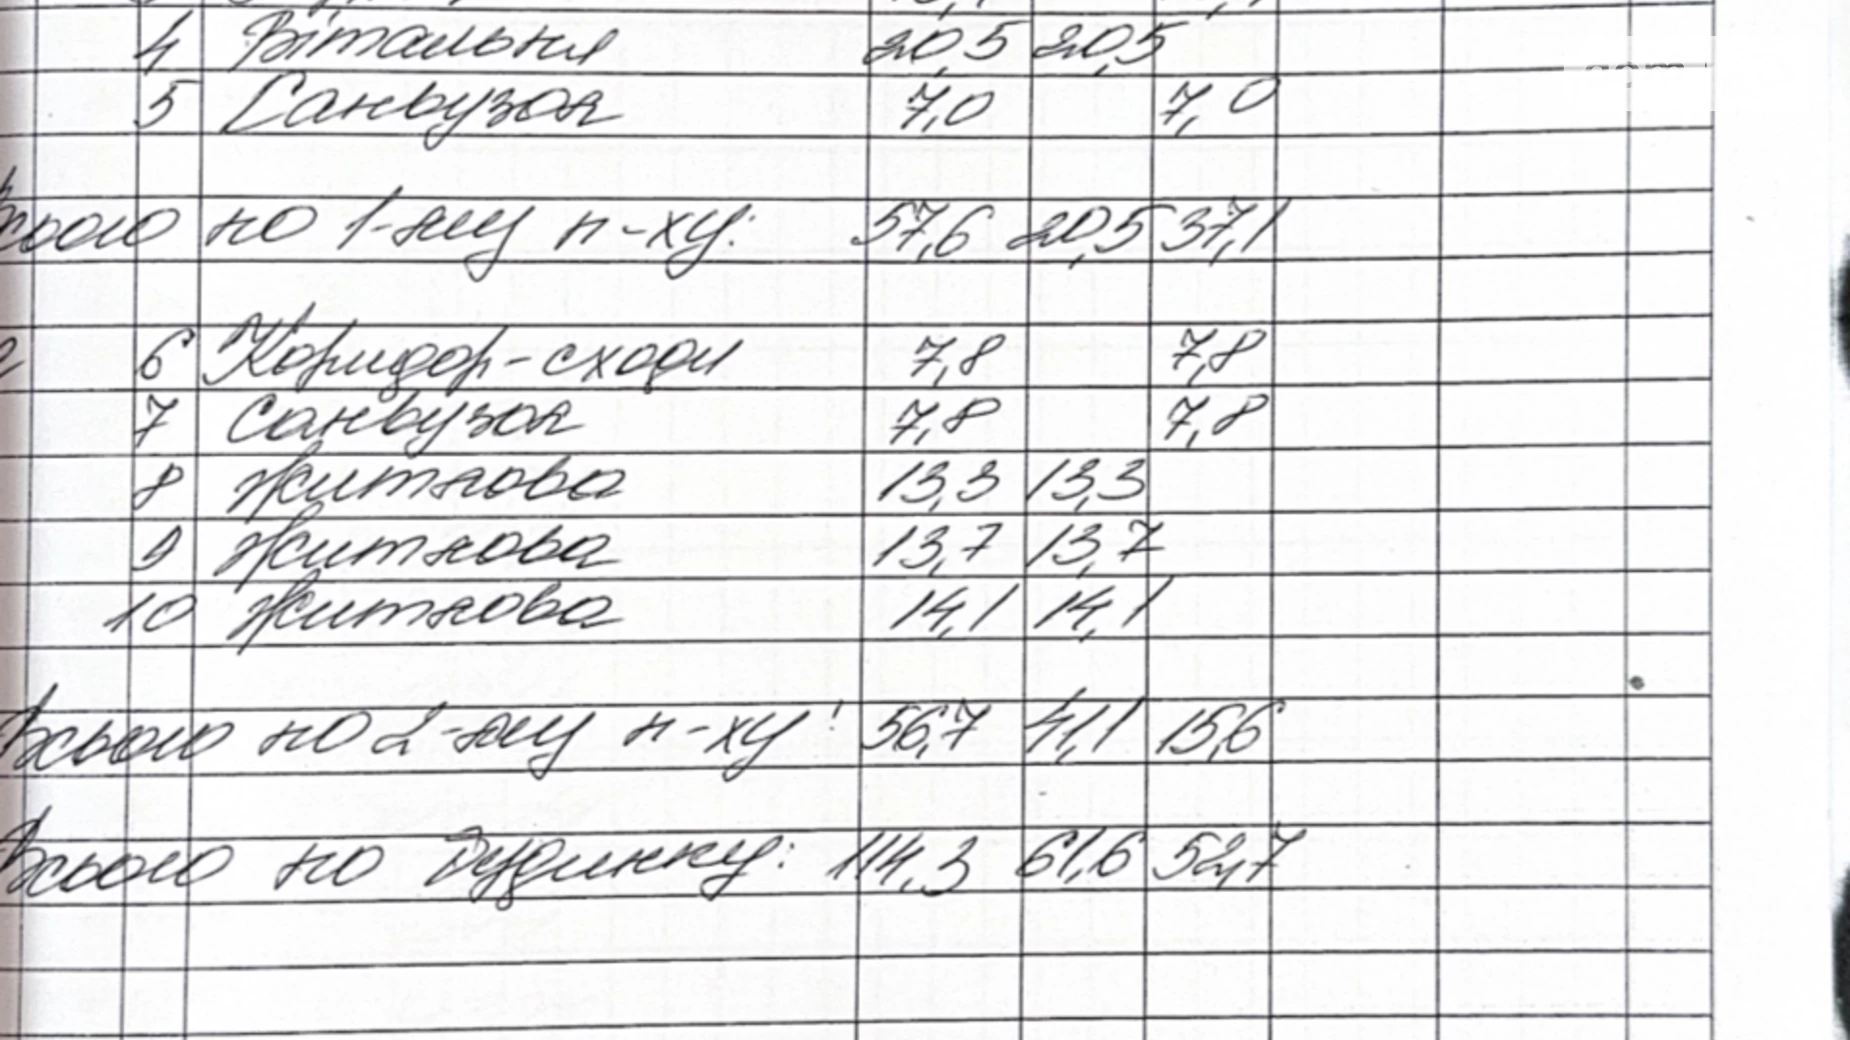 4 Вітальня 20,5 20,5
5 Санвузол 7,0 7,0
Всього по 1-му п-ху: 57,6 20,5 37,1
6 Коридор-сходи 7,8 7,8
7 Санвузол 7,8 7,8
8 Житлова 13,3 13,3
9 Житлова 13,7 13,7
10 Житлова 14,1 14,1
Всього по 2-му п-ху: 56,7 41,1 15,6
Всього по будинку: 114,3 61,6 52,7